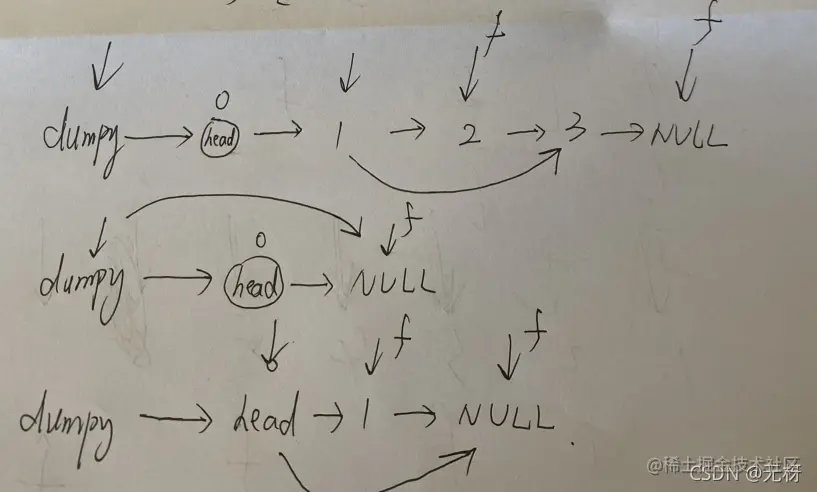 f f
0
dumpy head 1 2 3 NULL
f
0
dumpy head NULL
f f
dumpy head 1 NULL
@稀土掘金技术社区
CSDN @无枒